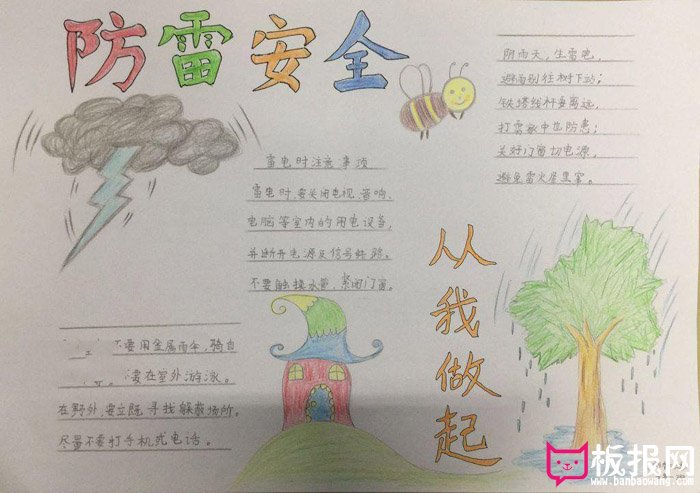 防雷安全
阴雨天,生雷电,
避雨别往树下站;
铁塔线杆要离远,
打雷家中也防患;
关好门窗切电源,
避免雷火屋里窜。
雷电时注意事项
雷电时,要关闭电视、音响、
电脑等室内的用电设备,
并断开电源及信号线路。
不要触摸水管,紧闭门窗。
从我做起
不要用金属雨伞,骑自
要在室外游泳。
在野外,要立既寻找躲蔽场所。
尽量不要打手机或电话。
板报网
www.banbaowang.com